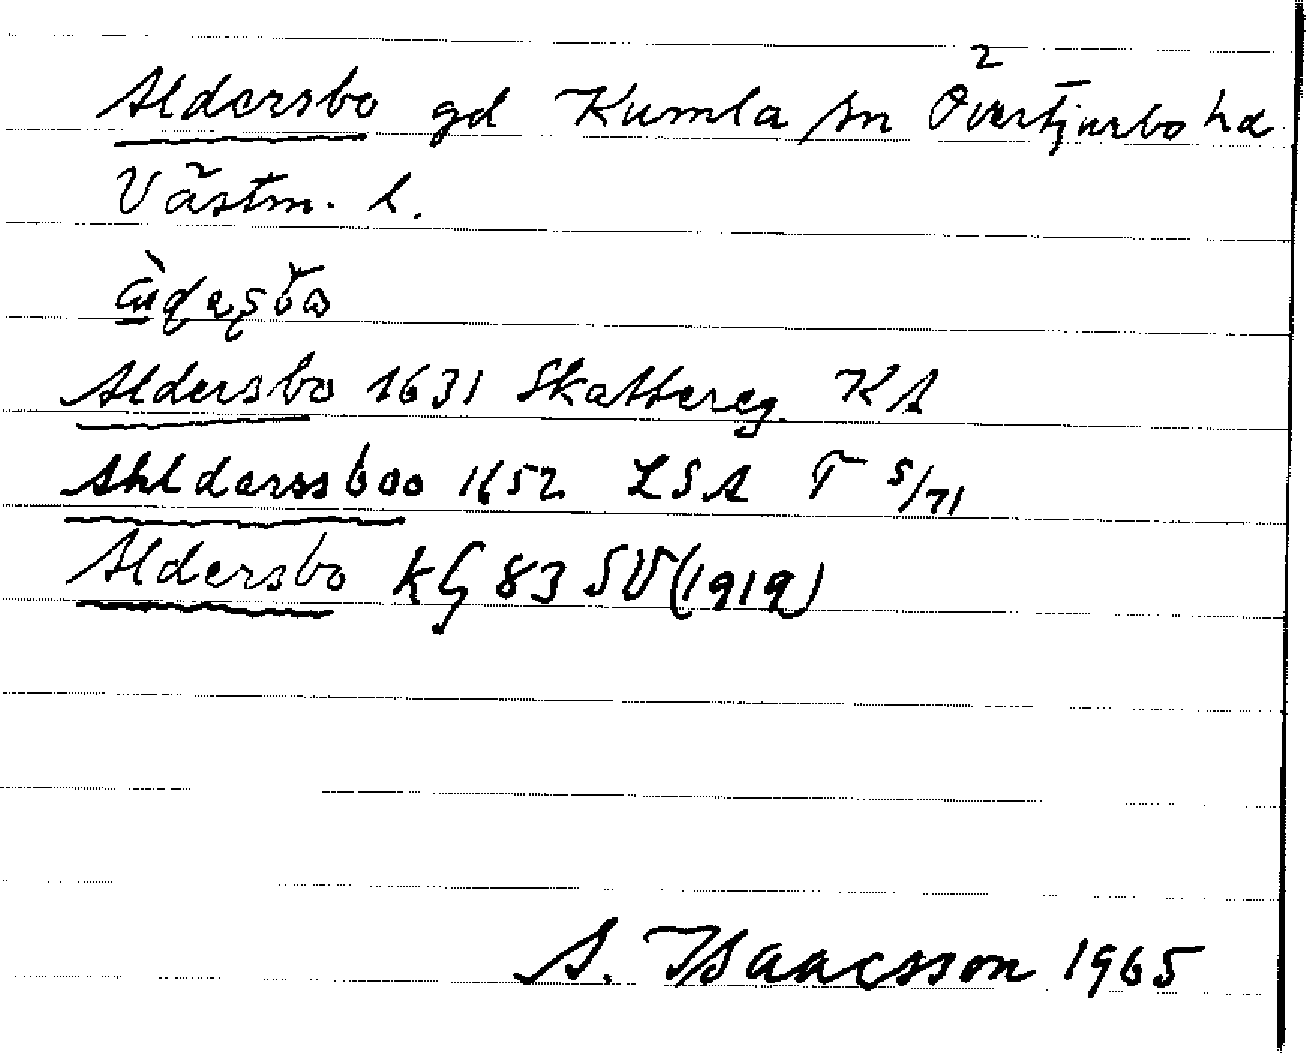 Aldersbo gd Kumla sn Övertjurbo hd
Västm. l.
Aldersbo 1631 Skattereg. KA
Ahldarssboo 1652 LSA T 5/71
Aldersbo kG 83 SV (1919)
A. Isaacsson 1965